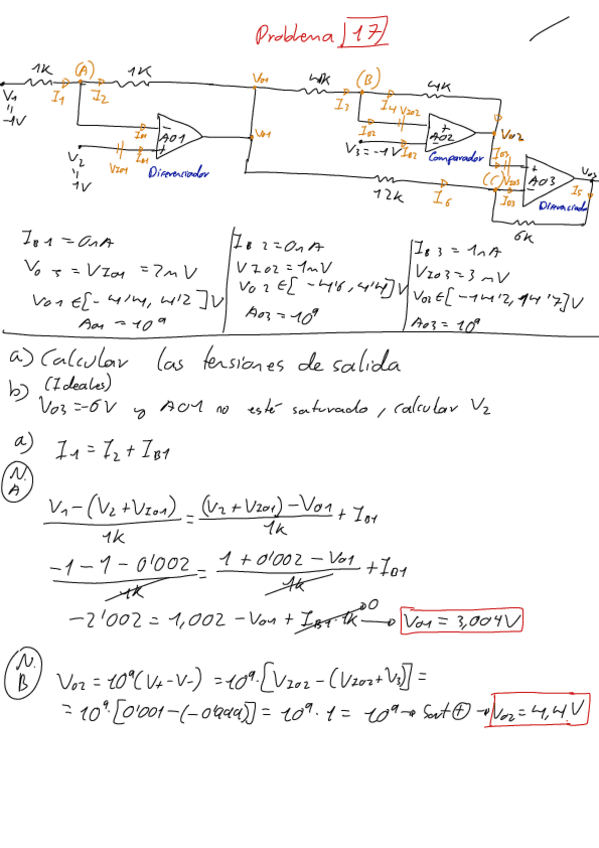 Problema 17
1K (A) 1K V01 4K (B) 4K
I1 I2 I3 I4 VI02
V1 = -1V
I01 I02 V02
A01 A02
V2 = 1V VI01 I01 Diferenciador
V3=-1V I02 Comparador
I03 (C) VI03 I03 A03 V03 I5
12K I6 6K Diferenciador
IB1 = 0nA
V0 s = VI01 = 2mV
V01 ∈[-4'4, 4'2]V
A01 = 10⁹
IB2 = 0nA
VI02 = 1mV
V02 ∈[-4'6, 4'4]V
A03 = 10⁹
IB3 = 1nA
VI03 = 3mV
V03 ∈[-14'2, 14'7]V
A03 = 10⁹
a) Calcular las tensiones de salida
(Ideales)
b) V03 = -6V y A01 no esté saturado, calcular V2
a) I1 = I2 + IB1
N. A
V1 - (V2 + VI01) / 1K = (V2 + VI01) - V01 / 1K + IB1
-1 - 1 - 0'002 / 1K = 1 + 0'002 - V01 / 1K + IB1
-2'002 = 1,002 - V01 + IB1 · 1K → 0 → V01 = 3,004V
N. B
V02 = 10⁹(V+ - V-) = 10⁹·[VI02 - (VI02 + V3)] =
= 10⁹·[0'001 - (-0'999)] = 10⁹ · 1 = 10⁹ → Sat ⊕ → V02 = 4,4V